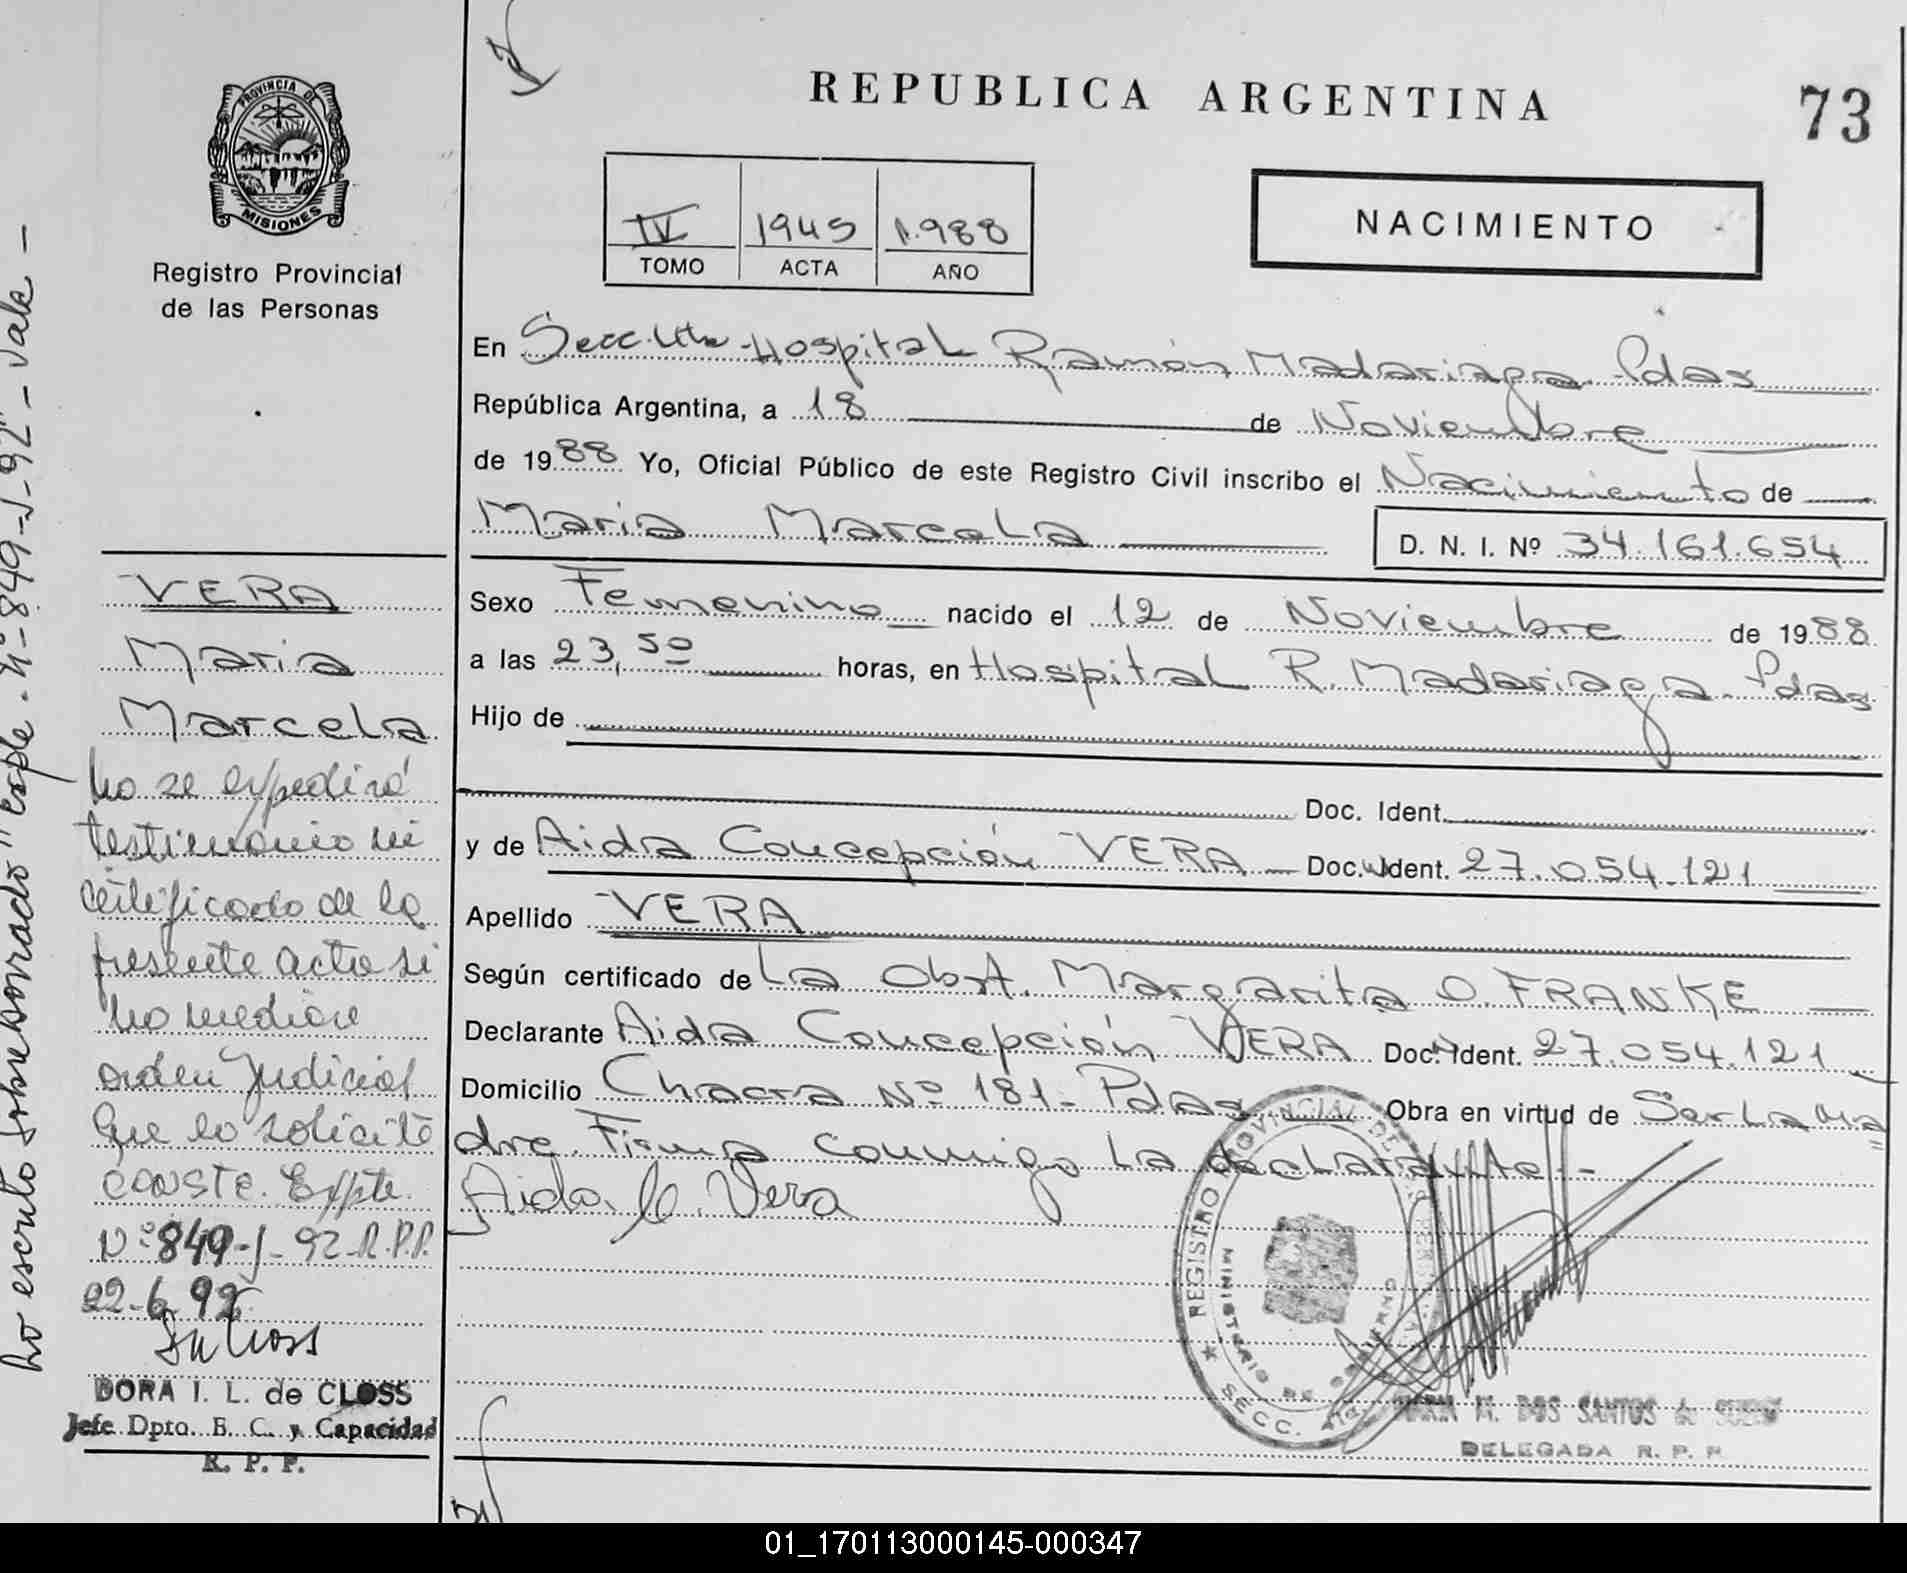 PROVINCIA DE
MISIONES
Registro Provincial
de las Personas
REPUBLICA ARGENTINA
73
IV 1945 1.988
TOMO ACTA AÑO
NACIMIENTO
En Secc. Hospital Ramón Madariaga Pdas
República Argentina, a 18 de Noviembre
de 1988 Yo, Oficial Público de este Registro Civil inscribo el Nacimiento de
Maria Marcela
D. N. I. Nº 34.161.654
Sexo Femenino nacido el 12 de Noviembre de 1988
a las 23,50 horas, en Hospital R. Madariaga Pdas
Hijo de
Doc. Ident.
y de Aida Concepción VERA Doc. Ident. 27.054.121
Apellido VERA
Según certificado de La Obst. Margarita O. FRANKE
Declarante Aida Concepción VERA Doc. Ident. 27.054.121
Domicilio Chacra Nº 181- Pdas Obra en virtud de Ser La Ma=
dre. Firma conmigo La declarante.-
Aida C. Vera
REGISTRO PROVINCIAL DE LAS PERSONAS
MINISTERIO DE GOBIERNO
SECC.
DOS SANTOS de
DELEGADA R. P. P.
VERA
Maria
Marcela
No se expedirá
testimonio ni
certificado de la
presente acta si
no mediare
orden Judicial
que lo solicite
CONSTE. Expte.
Nº 849-J-92-R.P.P.
22-6-92
DORA I. L. de CLOSS
Jefe Dpto. E. C. y Capacidad
R. P. P.
Lo escrito sobreborrado "Expte. Nº-849-J-92"- Vale -
01_170113000145-000347